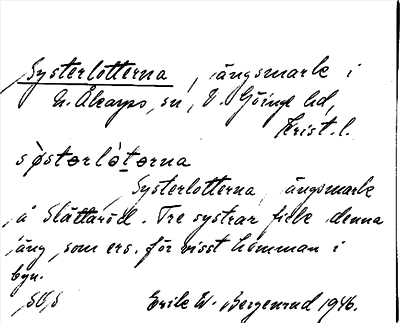 Systerlotterna, ängsmark i
N. Åkarps sn, V. Göinge hd,
Krist. l.
sỳstərlòtərna
Systerlotterna, ängsmark
å Slättaröd. Tre systrar fick denna
äng som ers. för visst hemman i
byn.
Erik W. Bergenrud 1946.